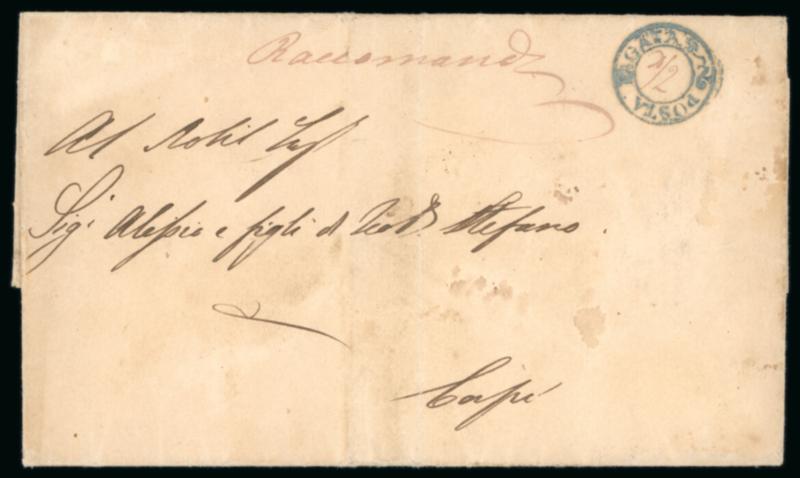 Raccomand
PAGATA POSTA
2/2
Al Nobil Sig
Sig. Alessio e figli di Teod. Stefano.